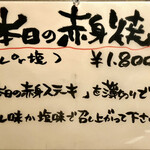 本日の赤身焼
(レor塩)
¥1.800
本日の赤身ステーキ」を薄切りで
レ味か塩味で召し上がって下さい